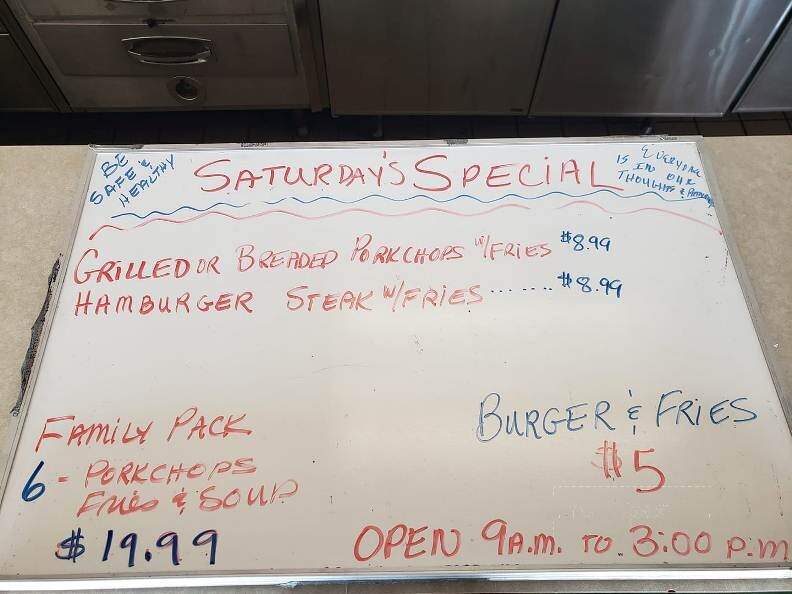 BE
SAFE &
HEALTHY
SATURDAY'S SPECIAL
EVERYONE
IS IN OUR
THOUGHTS &
GRILLED OR BREADED PORKCHOPS W/FRIES $8.99
HAMBURGER STEAK W/FRIES ....... $8.99
FAMILY PACK
6 - PORKCHOPS
FRIES & SOUP
$19.99
BURGER & FRIES
$5
OPEN 9A.M. TO 3:00 P.M